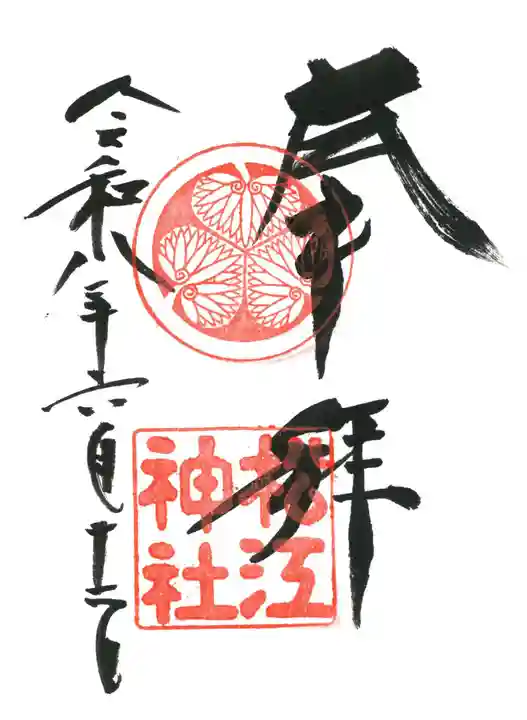 奉拝
松江
神社
令和八年六月十三日